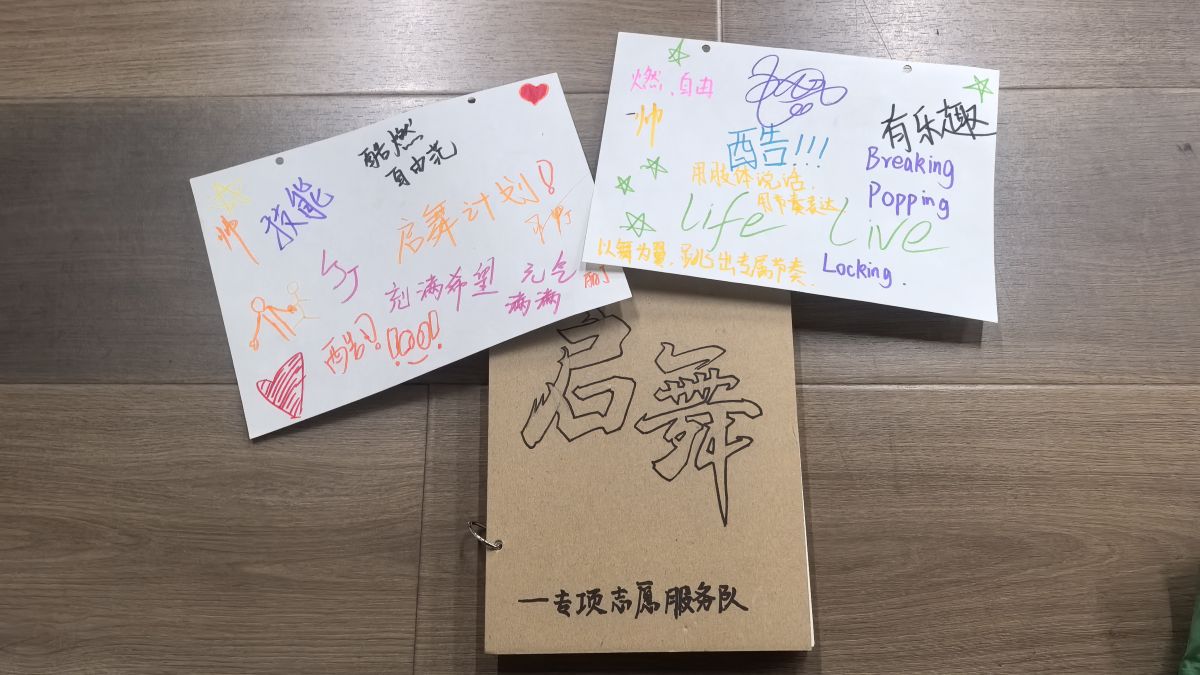 酷燃
自由
帅
技能
启舞计划!
充满希望
元气
满满
酷!
燃、自由
帅
酷!!!
有乐趣
Breaking
Popping
Locking.
用肢体说话.
用节奏表达
Life Live
以舞为翼,跳出专属节奏.
启舞
—专项志愿服务队